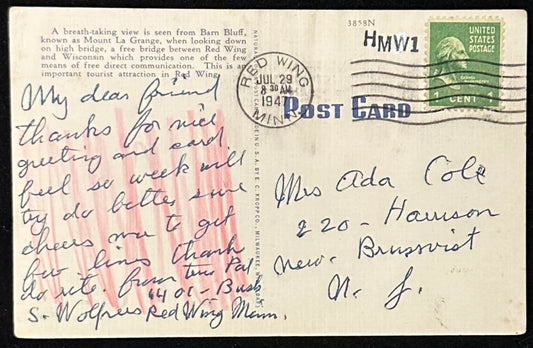 A breath-taking view is seen from Barn Bluff,
known as Mount La Grange, when looking down
on high bridge, a free bridge between Red Wing
and Wisconsin which provides one of the few
means of free direct communication. This is an
important tourist attraction in Red Wing.
3858N
HMW1
UNITED
STATES
POSTAGE
1 CENT 1
RED WING
JUL 29
8 30 AM
1947
MINN.
POST CARD
My dear friend
thanks for nice
greeting and card
feel so weak will
try do better sure
cheers me to get
few lines thank
do rite. from true Pal
1401- Bush
S. Wolfrees Red Wing Minn.
Mrs Ada Cole
220- Harrison
New. Brunsvist
N. J.